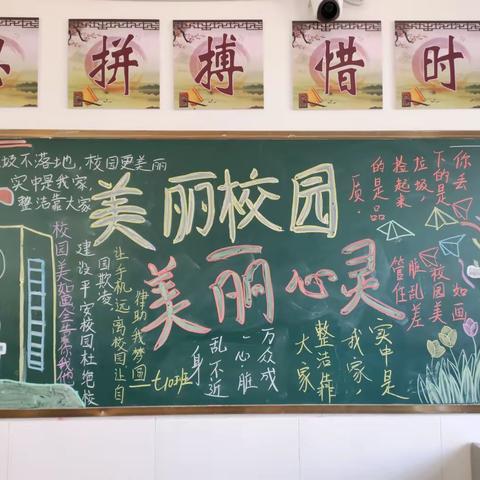 拼
搏
惜
时
圾不落地，校园更美丽
实中是我家，
整洁靠大家
美丽校园
美丽心灵
你丢
下的是
垃圾，
捡起来
的是品
质.
校园美如画全靠你我他
建设平安校园杜绝校
园欺凌。
让手机远离校园让自
律助我梦圆
七10班
万众成
一心.脏
乱不近
身
实中是
我家，
整洁靠
大家
如画
校园美
脏乱差
管住